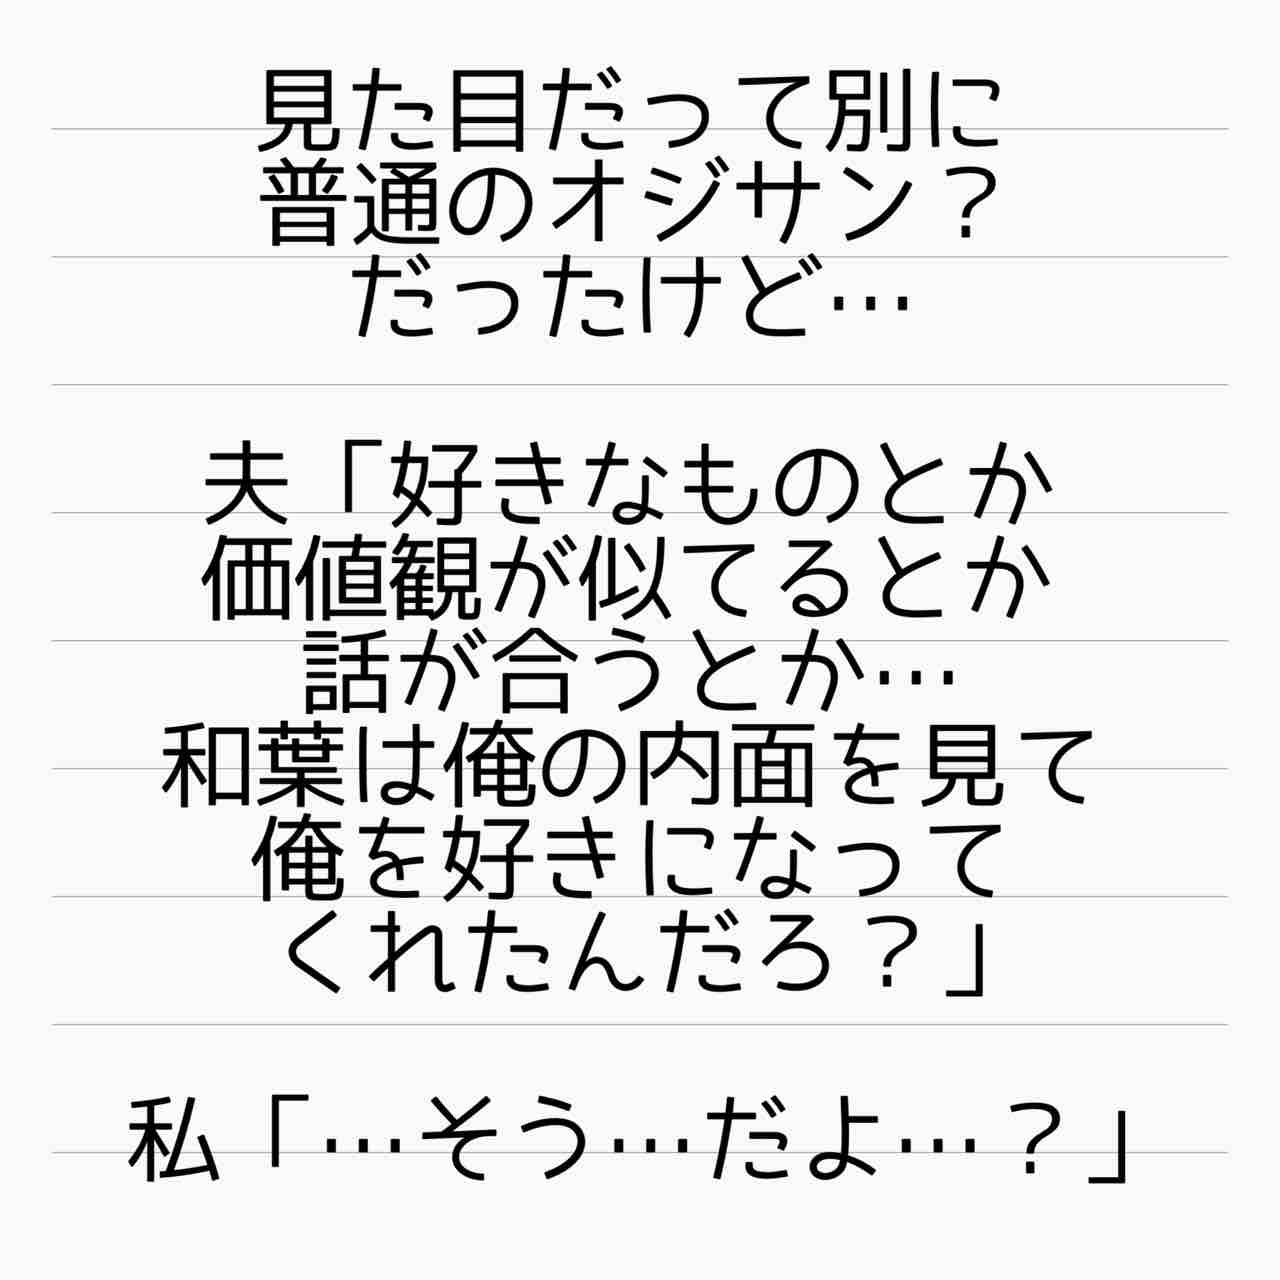 見た目だって別に
普通のオジサン？
だったけど…
夫「好きなものとか
価値観が似てるとか
話が合うとか…
和葉は俺の内面を見て
俺を好きになって
くれたんだろ？」
私「…そう…だよ…？」